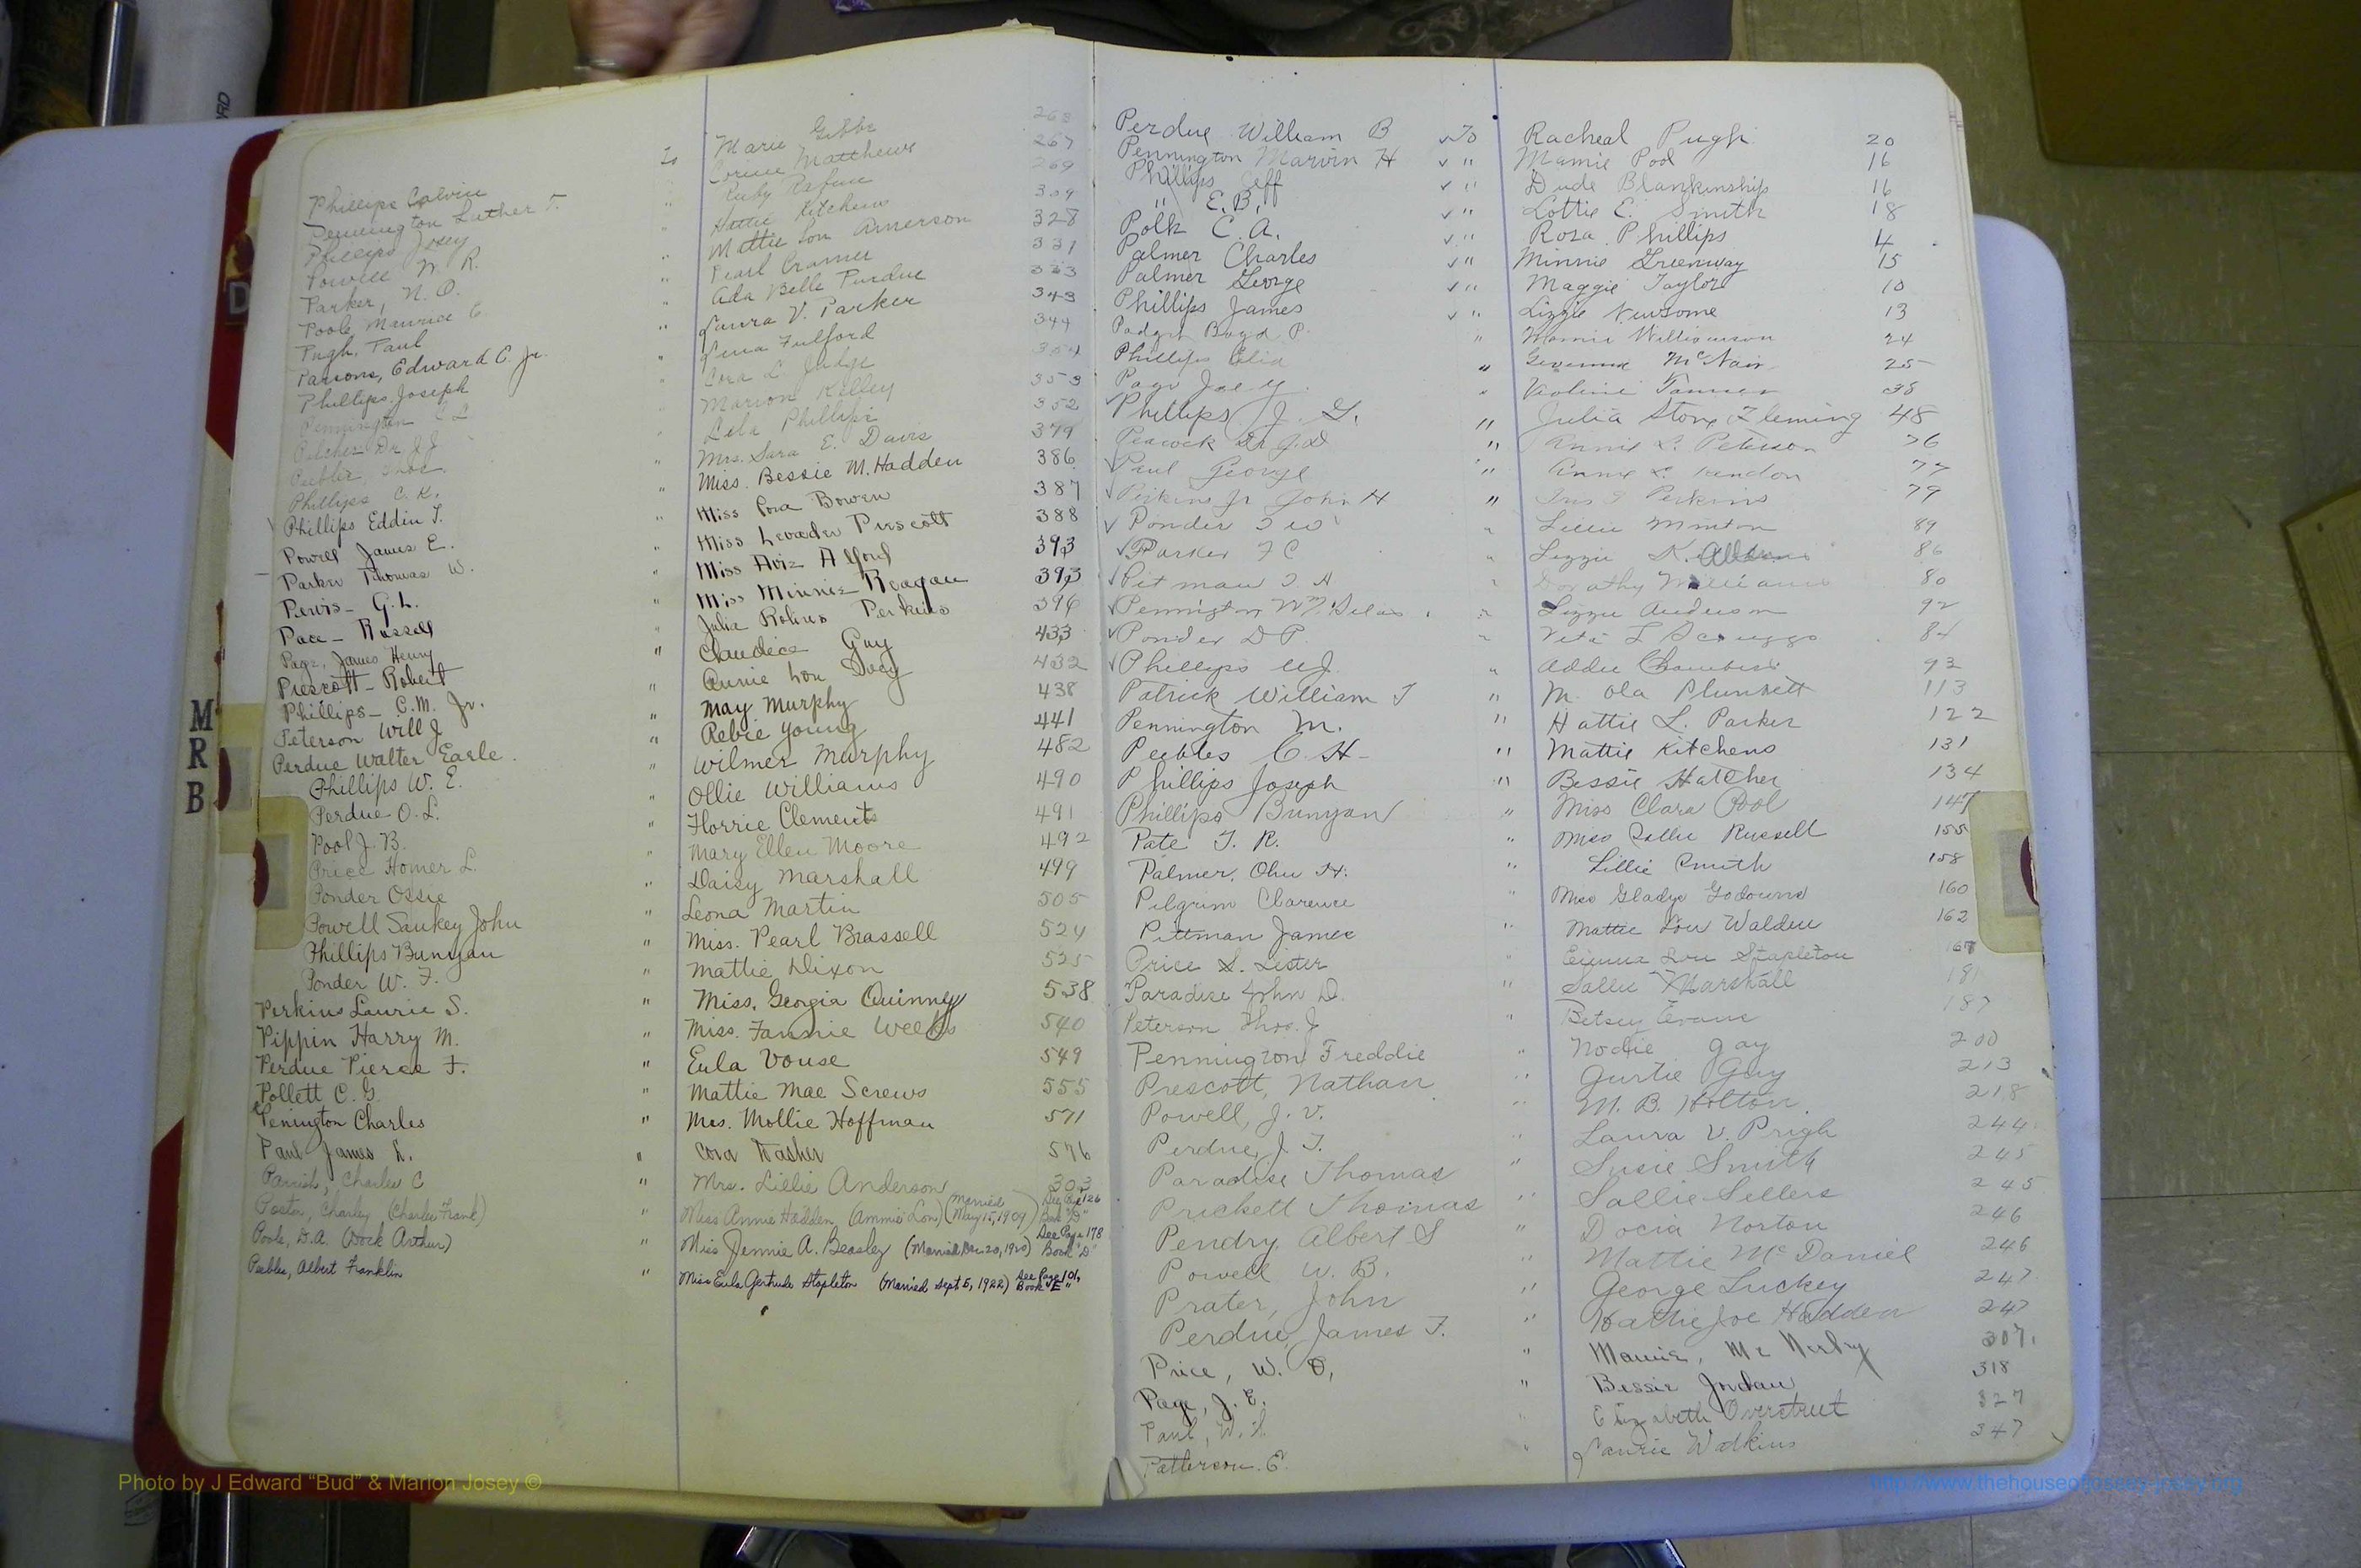 Phillips Calvin To Marie Gibbs 263
Pennington Luther T. " Matthews 267
Phillips Josey " Ruby 269
Powell W. R. " Hattie Kitchens 309
Parker, N. O. " Mattie Lou Amerson 328
Poole Maurice C " Pearl Cramer 331
Pugh, Paul " Ada Belle Purdue 333
Parsons, Edward C. Jr. " Laura V. Parker 343
Phillips, Joseph " Lena Fulford 344
Pennington " Cora L. Judge
Pilcher Dr. J J " Marion Kelley 353
" Lela Phillips 352
Phillips C. K. " Mrs. Sara E. Davis 379
Phillips Eddin T. " Miss. Bessie M. Hadden 386
Powell James E. " Miss Cora Bowen 387
Parker Thomas W. " Miss Prescott 388
Pervis - G. L. " Miss Aviz Alford 393
Pace - Russell " Miss Minnie Reagan 393
Page, James Henry " Julia Perkins 396
Prescott - Robert " Claudice Guy 433
Phillips - C. M. Jr. " Annie Lou 432
Peterson Will J " May Murphy 438
Perdue Walter Earle " Rebie Young 441
Phillips W. E. " Wilmer Murphy 482
Perdue O. L. " Ollie Williams 490
Pool J. B. " Horrie Clements 491
Price Homer L. " Mary Ellen Moore 492
Ponder Ossie " Daisy Marshall 499
Powell Sankey John " Leona Martin 505
Phillips Bunyan " Miss. Pearl Brassell 524
Ponder W. F. " Mattie Dixon 525
Perkins Laurie S. " Miss. Georgia Quinney 538
Pippin Harry M. " Miss. Fannie Weeks 540
Perdue Pierce F. " Eula Vouse 549
Pollett C. G. " Mattie Mae Screws 555
Penington Charles " Mrs. Mollie Hoffman 571
Paul James L. " Cora Dasher 576
Parrish, Charles C " Mrs. Lillie Anderson 303
Poston, Charley (Charles Frank) " Miss Annie Hadden (Ammie Lou) (Married May 15, 1909) See Page 126 Book "D"
Poole, D.A. (Dock Arthur) " Miss Jennie A. Beasley (Married Dec. 20, 1920) See Page 178 Book "D"
Peebles, Albert Franklin " Miss Eula Gertrude Stapleton (Married Sept 5, 1922) See Page 101, Book "E"
Perdue William B To Racheal Pugh 20
Pennington Marvin H " Mamie Pool 16
Phillips Jeff " Dude Blankinship 16
" E. B. " Lottie E. Smith 18
Polk C. A. " Rosa Phillips 4
Palmer Charles " Minnie Greenway 15
Palmer George " Maggie Taylor 10
Phillips James " Lizzie Newsome 13
Padget Boyd P. " Mamie Williamson 24
Phillips Elia " McNair 25
Page Joe Y. " Tanner 38
Phillips J. G. " Julia Stone Fleming 48
Peacock Dr. J. D " Annie L. Peterson 76
Paul George " Annie L. 77
Perkins Jr John H " Iris Perkins 79
Ponder J W " Lillie Minton 89
Parker F C " Lizzie K. 86
Pitman J. H " Dorathy Williams 80
Pennington Wm. " Lizzie Anderson 92
Ponder D P. " Veta L Scruggs 84
Phillips J. " Addie Chambers 93
Patrick William T " M. Ola Plunkett 113
Pennington M. " Hattie L. Parker 122
Peebles C. H. " Mattie Kitchens 131
Phillips Joseph " Bessie Hatcher 134
Phillips Bunyan " Miss Clara Pool 147
Pate T. R. " Miss Sallie Russell 155
Palmer, H. " Lillie Smith 158
Pilgrim Clarence " Miss Gladys Godowns 160
Pittman James " Mattie Lou Walden 162
Price S. Lester " Emma Lou Stapleton 167
Paradise John D. " Sallie Marshall 181
Peterson Thos. J " Betsey Evans 187
Pennington Freddie " Nodie Gay 200
Prescott, Nathan " Gurtie Guy 213
Powell, J. V. " M. B. Holton 218
Perdue, J T. " Laura V. Prigh 244
Paradise Thomas " Susie Smith 245
Prickett Thomas " Sallie Sellers 245
Pendry, Albert S " Docia Norton 246
Powell W. B. " Mattie McDaniel 246
Prater, John " George Luckey 247
Perdue, James T. " Hattie Joe Hadden 247
Price, W. O, " Mamie, 307
Page, J. E. " Bessie Jordan 318
Paul, W. H. " Elizabeth Overstreet 327
Patterson. E. " Watkins 347
M
R
B
D
Photo by J Edward "Bud" & Marion Josey ©
http://www.thehouseofjossey-josey.org